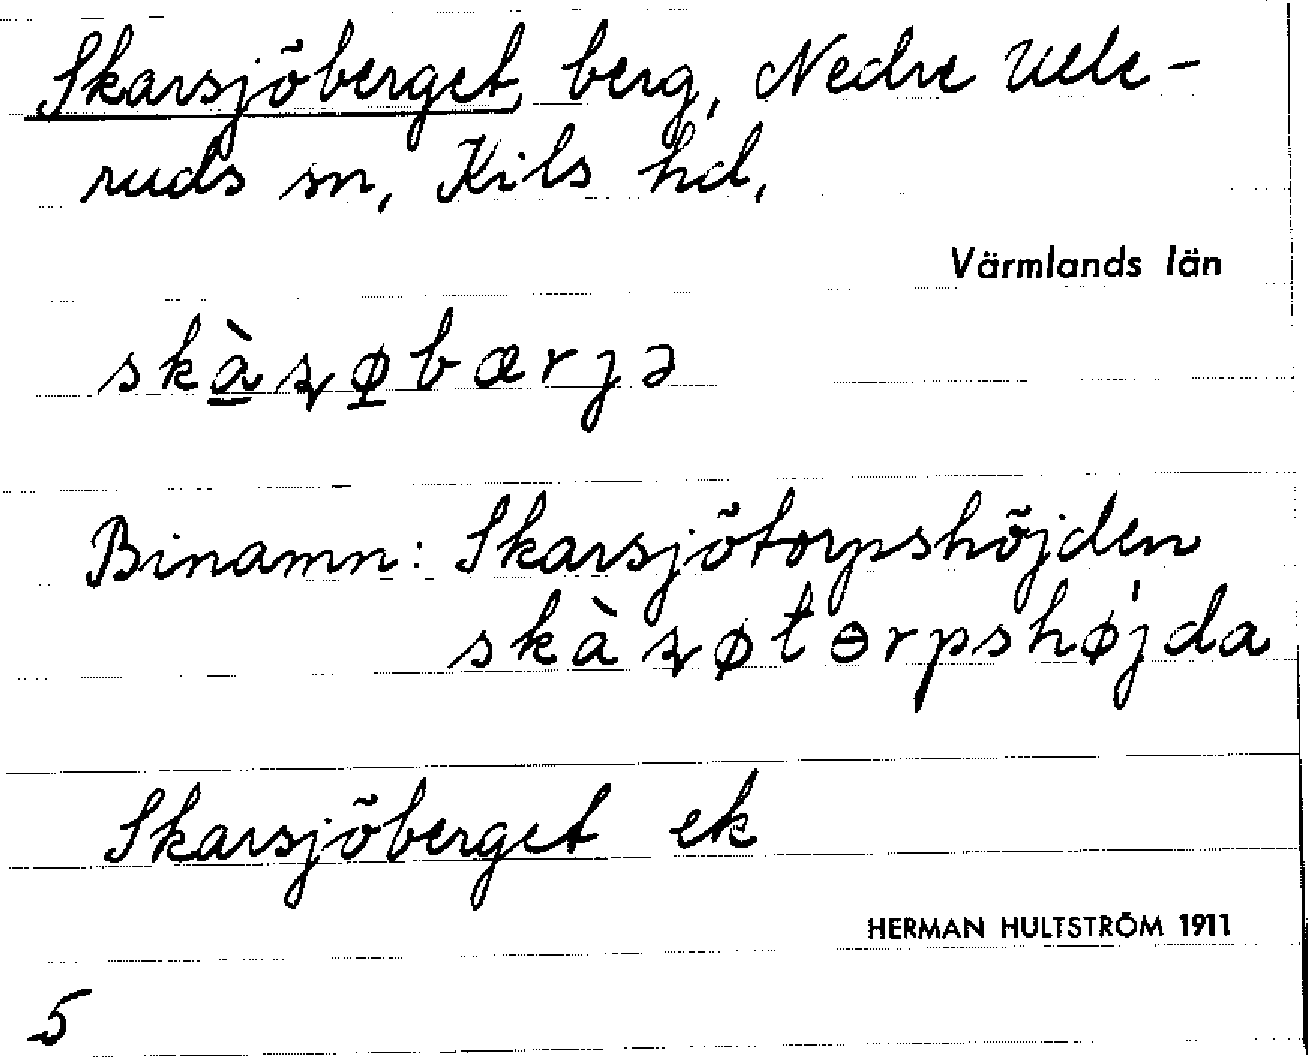 Skarsjöberget, berg, Nedre Ulle-
ruds sn, Kils hd,
Värmlands län
skàʂøbærjə
Binamn: Skarsjötorpshöjden
skàʂøtɵrpshøjda
Skarsjöberget ek
HERMAN HULTSTRÖM 1911
5